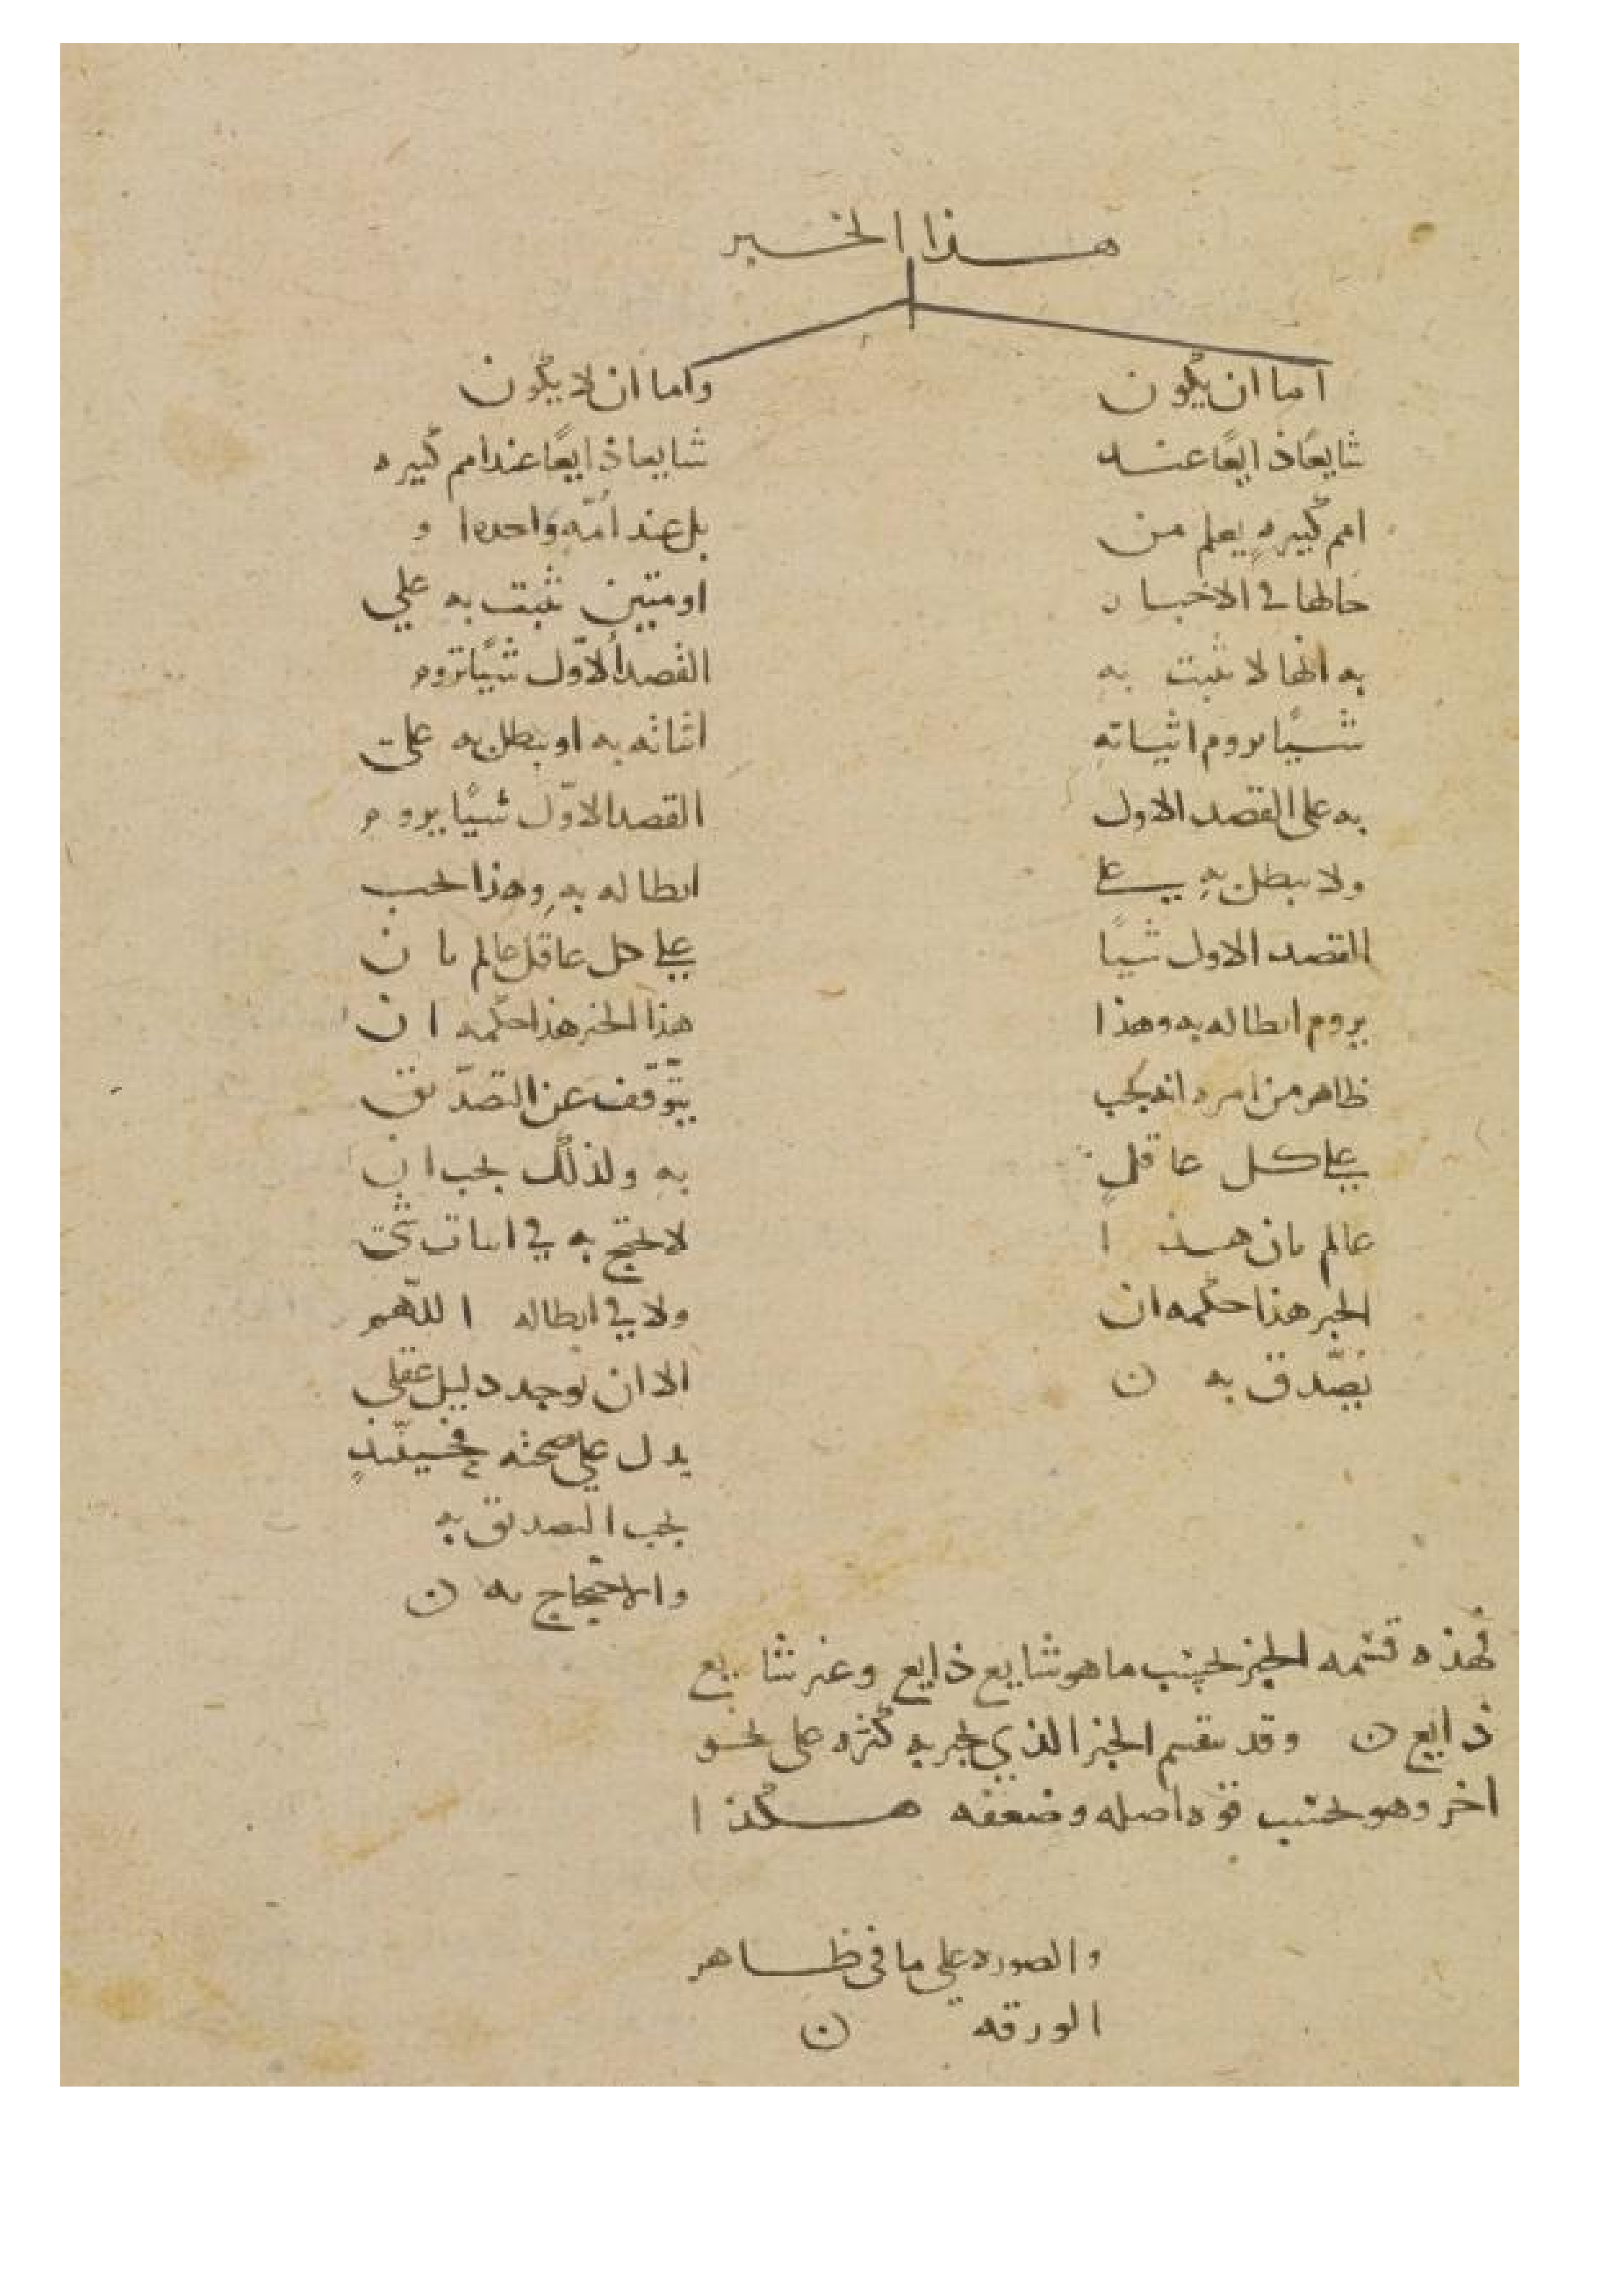 هذا الخبر
اما ان يكون
شايعًا ذايعًا عند
امم كبيرهٍ يعلم من
حَالها في الاخبار
به انها لا تثبت بهِ
شيًا تروم اثباتهِ
به على القصد الاول
ولا تبطل بهِ على
القصد الاول شيًا
يروم ابطاله به وهذا
ظاهر من امره انه يجب
على كل عاقلٍ
عالم بان هذا
الخبر هذا حكمه ان
يُصّدق به ن
واما ان لا يكون
شايعا ذايعًا عند امم كبيره
بل عند امّه واحده ا و
او متين تثبت به علي
القصد الاوّل شيًا تروم
اثباته به او يبطل به على
القصد الاوّل شيًا يروم
ابطاله بهِ وهذا يجب
على كل عاقل عالم بان
هذا الخبر هذا حكمه ان
يتّوقّف عن التصّديق
بهِ ولذلك يجب ان
لا يحتج به في اثبات شي
ولا في ابطاله اللّهم
الا ان يوجد دليل عقلي
يدل على صحته فحينّئذٍ
يجب التصديق به
والاحتجاج به ن
فهذه قسمه الخبر بحسب ما هو شايع ذايع وغير شايع
ذايع ن وقد ينقسم الخبر الذي يخبر به كثره على نحو
اخر وهو بحسب قوه اصله وضعفه هكذا
والصوره على ما فى ظاهر
الورقه ن